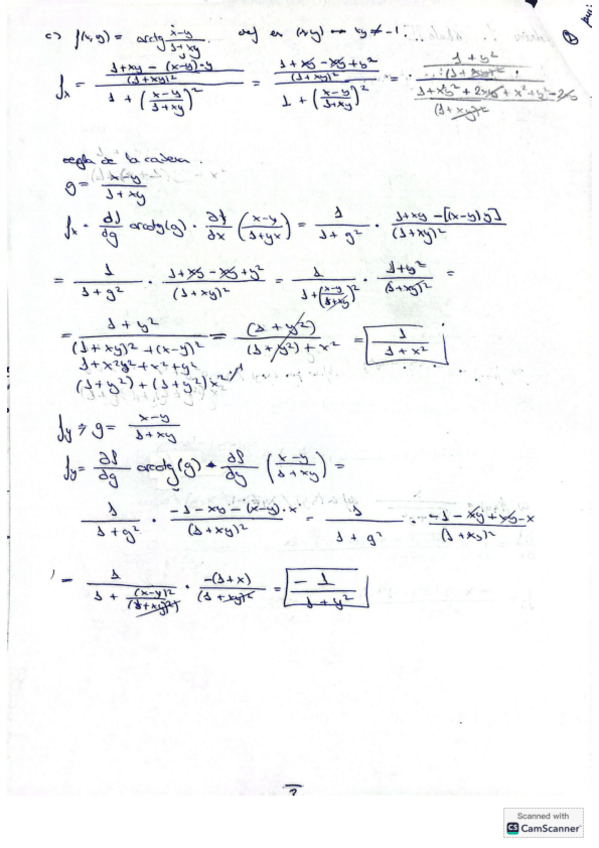 c) f(x,y) = arctg x-y / 1+xy. def en (x,y) ↔ xy ≠ -1.
fx = (1+xy - (x-y)·y / (1+xy)²) / (1 + (x-y / 1+xy)²) = (1+xy-xy+y² / (1+xy)²) / (1 + (x-y / 1+xy)²) = (1+y² / (1+xy)²) / (1+x²y²+2xy+x²+y²-2xy / (1+xy)²)
regla de la cadena.
g = x-y / 1+xy
fx = ∂f/∂g arctg(g) · ∂f/∂x (x-y / 1+yx) = 1 / 1+g² · 1+xy-[(x-y)y] / (1+xy)²
= 1 / 1+g² · 1+xy-xy+y² / (1+xy)² = 1 / 1+(x-y / 1+xy)² · 1+y² / (1+xy)² =
= 1+y² / (1+xy)²+(x-y)² = (1+y²) / (1+y²)+x² = 1 / 1+x²
1+x²y²+x²+y²
(1+y²)+(1+y²)x²
fy ⇒ g = x-y / 1+xy
fy = ∂f/∂g arctg(g) · ∂f/∂y (x-y / 1+xy) =
1 / 1+g² · -1-xy-(x-y)·x / (1+xy)² = 1 / 1+g² · -1-xy+xy-x / (1+xy)²
= 1 / 1+ (x-y)² / (1+xy)² · -(1+x) / (1+xy)² = -1 / 1+y²
Scanned with
CS CamScanner